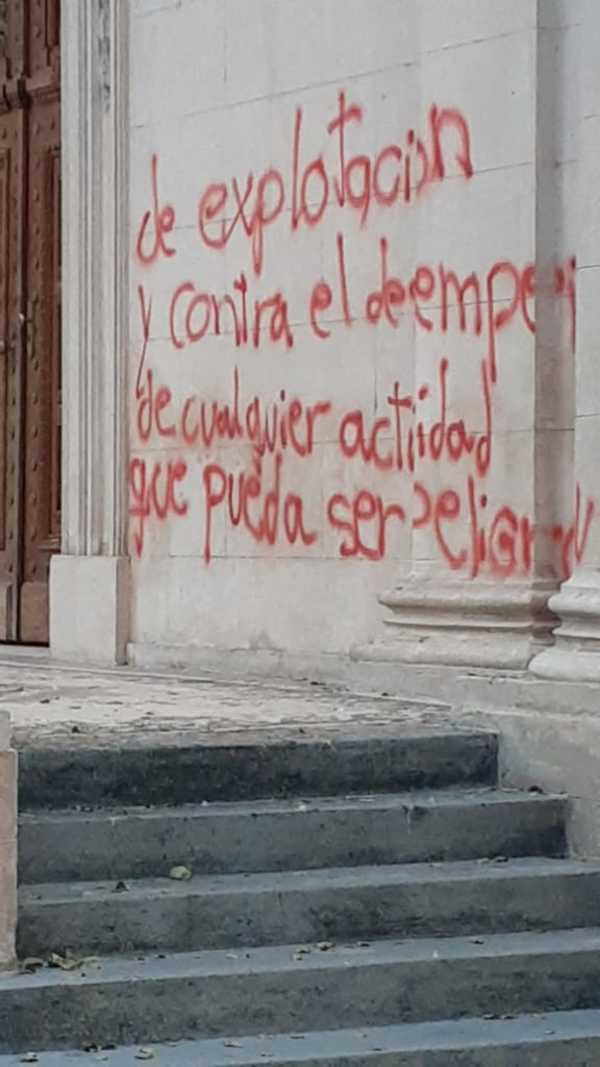 de explotación
y contra el deempeñ
de cualquier actiidad
que pueda ser peligr